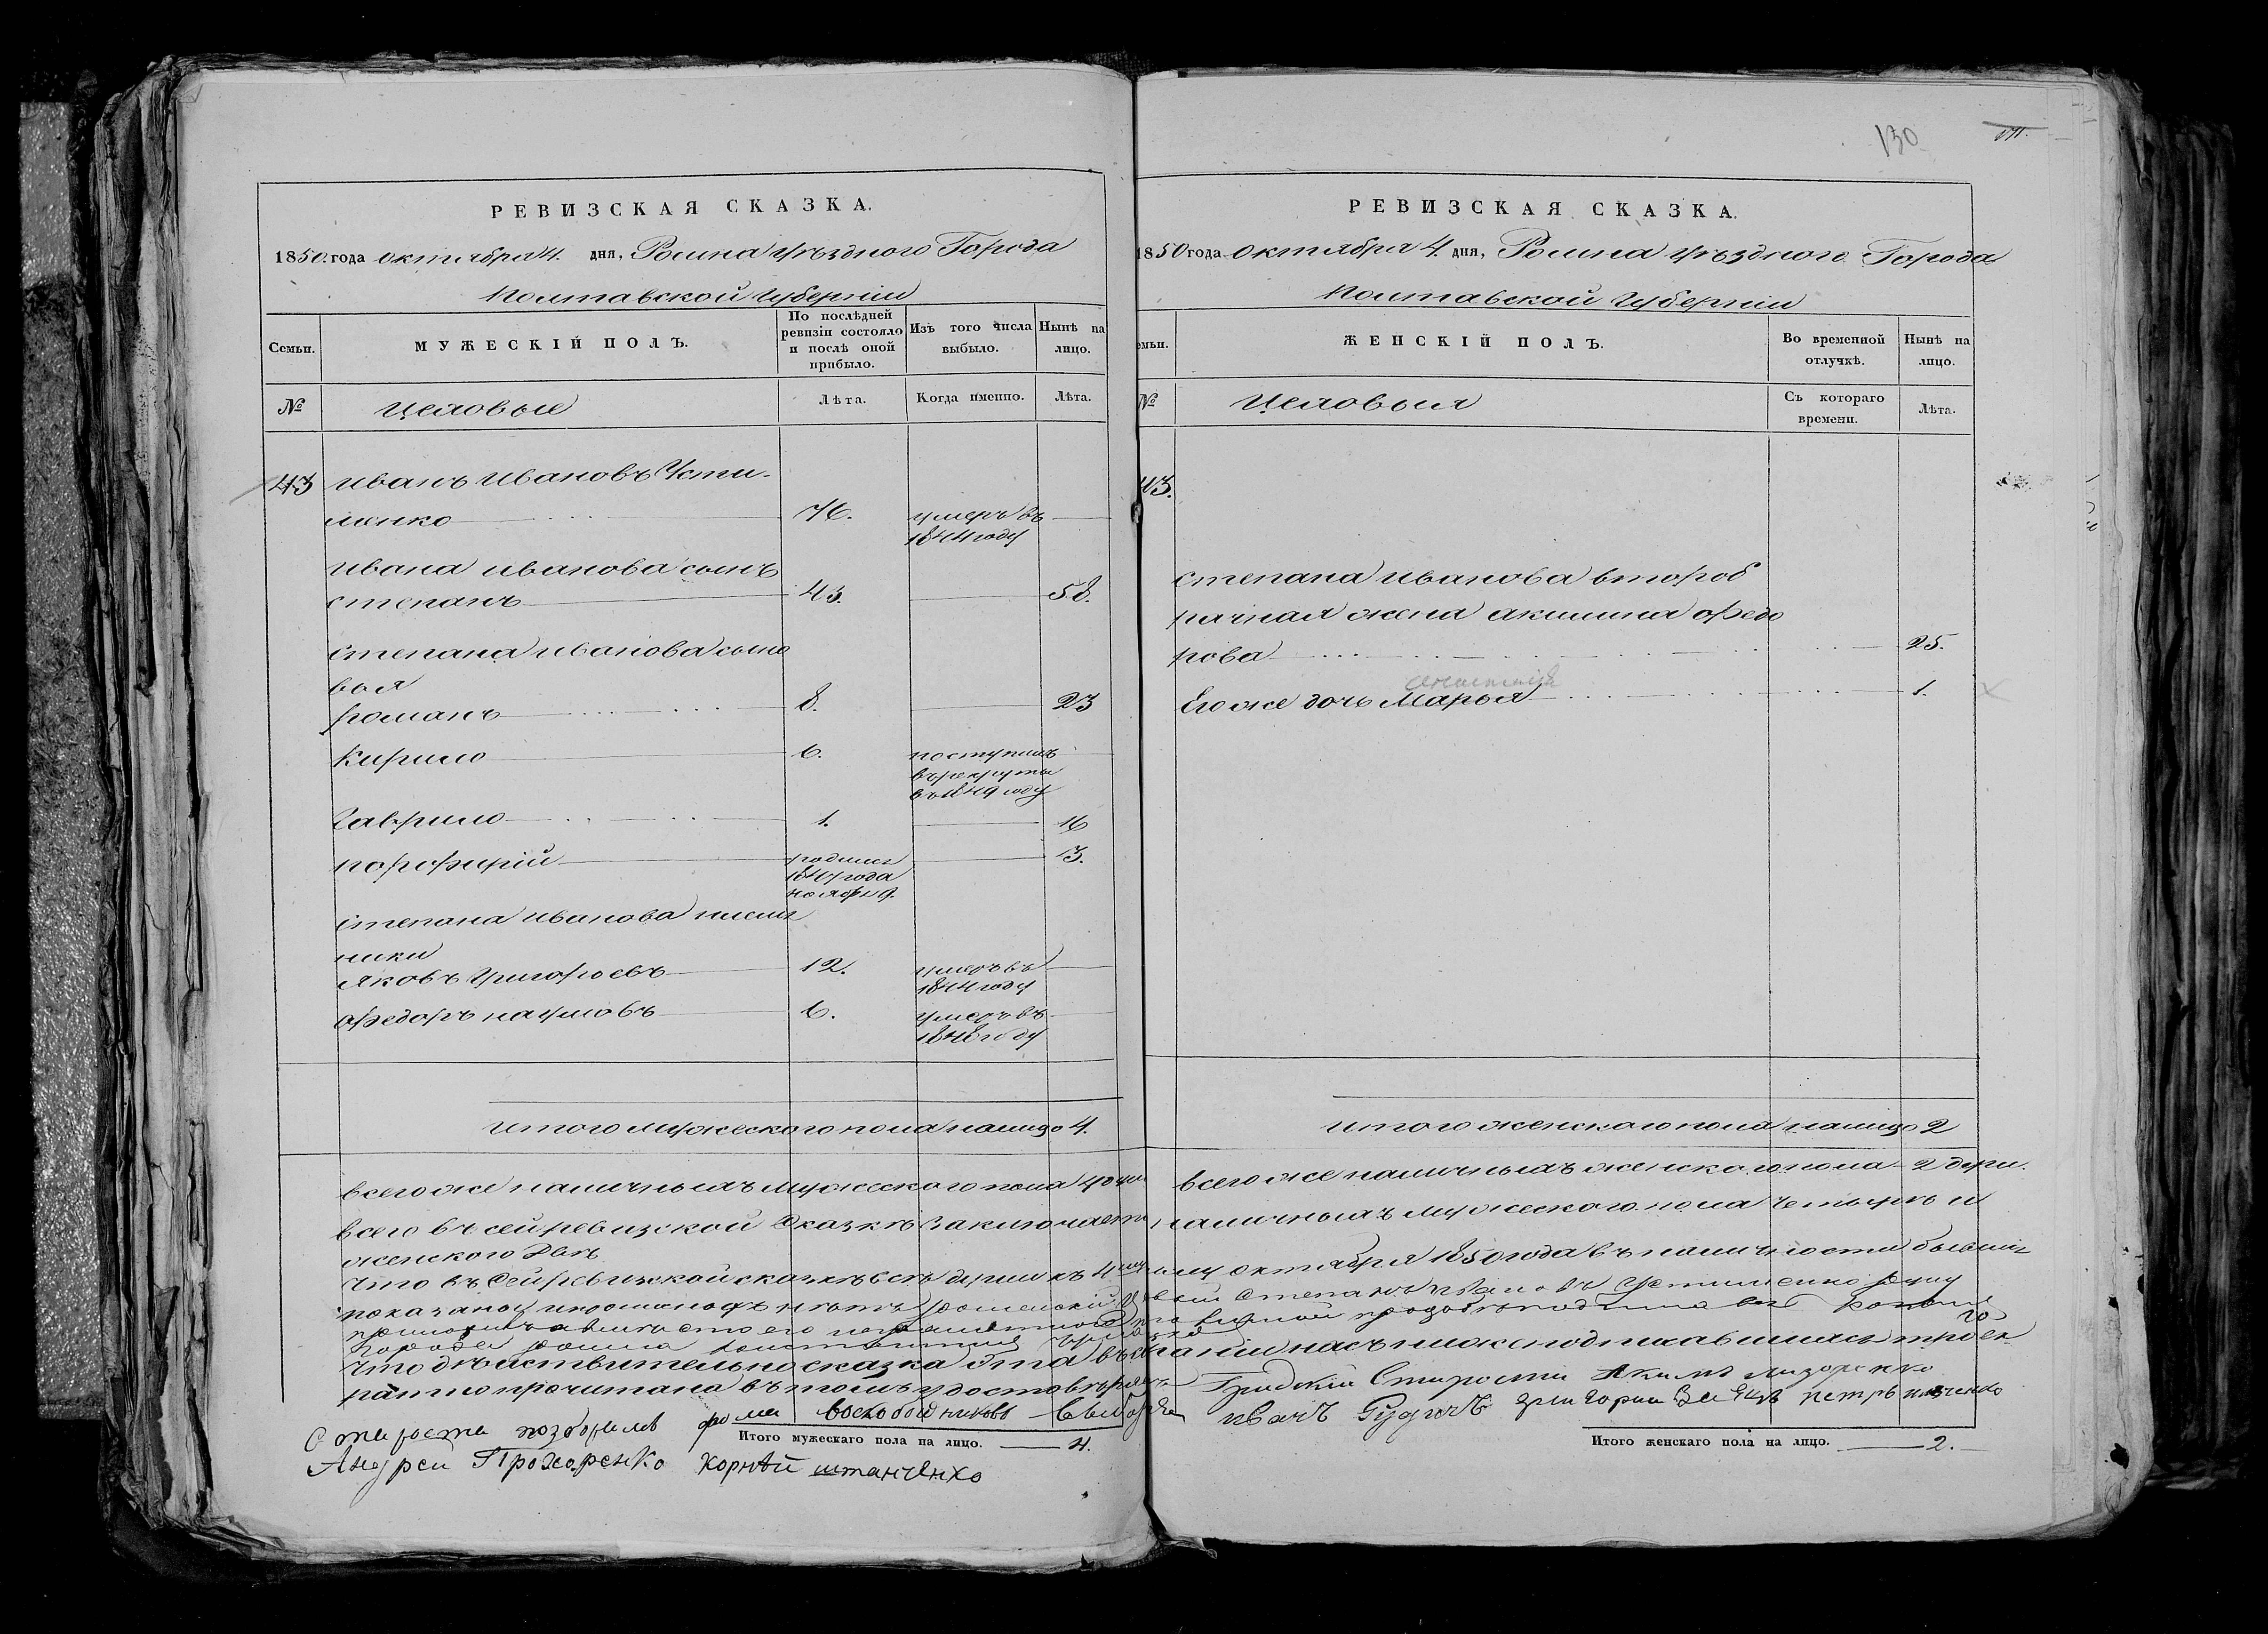 РЕВИЗСКАЯ СКАЗКА.
1850. года октября 4. дня, Ромна уѣздного Города
Полтавской губерніи
Семьи.
МУЖЕСКІЙ ПОЛЪ.
По послѣдней ревизіи состояло и послѣ оной прибыло.
Изъ того числа выбыло.
Нынѣ на лицо.
№
Цеховые
Лѣта.
Когда именно.
Лѣта.
43 Иванъ Ивановъ Усти-
менко 76. умеръ въ
1844 году
Ивана Иванова сынъ
степанъ 43. 58.
Степана Иванова сыно
вья
романъ 8. 23
Кирило 6. поступилъ
въ рекруты
въ 1849 году
Гаврило 1. 16
порфирій родился 13.
года
ноября 9.
Степана Иванова племя
ники
Яковъ Григорьевъ 12. умеръ въ
1844 году
Федоръ наумовъ 6. умеръ въ
1848 году
Итого мужеского пола налицо 4.
всего же наличныхъ мужеского пола 4 души
всего въ сей ревизской сказкѣ заключается
женского двѣ
что въ сей ревизской сказкѣ все души къ 4
показаны и прописныхъ нѣтъ роменскій
Города Ромна
что дѣйствительно сказка эта въ
ратно прочитана въ томъ удостовѣряемъ
Староста фома воскобойниковъ выборные
Андрей Прохоренко Корнѣй штанченко
Итого мужескаго пола на лицо. 4.
130
РЕВИЗСКАЯ СКАЗКА.
1850 года Октября 4. дня, Ромна уѣздного Города
Полтавской губерніи
ЖЕНСКІЙ ПОЛЪ.
Во временной отлучкѣ.
Нынѣ на лицо.
№
Цеховыя
Съ котораго времени.
Лѣта.
43.
Степана Иванова второб
рачная жена акилина Федо
рова 25.
Его же дочь Марья 1.
Итого женского пола налицо 2
всего же наличныхъ женского пола 2 души.
наличныхъ мужеского пола четыре и
октября 1850 года въ наличности бывшія
степанъ Ивановъ Устименко
насъ нижеподписавшихся трое-
Градскій Староста Акимъ
Иванъ Рударь Григорий Заяцъ петръ
Итого женскаго пола на лицо. 2.